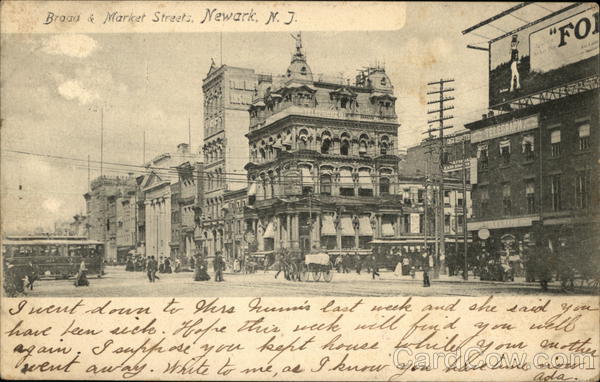 Broad & Market Streets, Newark, N. J.
"FO
I went down to Mrs Nunn's last week and she said you
have been sick. Hope this week will find you well
again. I suppose you kept house while your mother
went away. Write to me, as I know you have time now
Ada.
CardCow.com